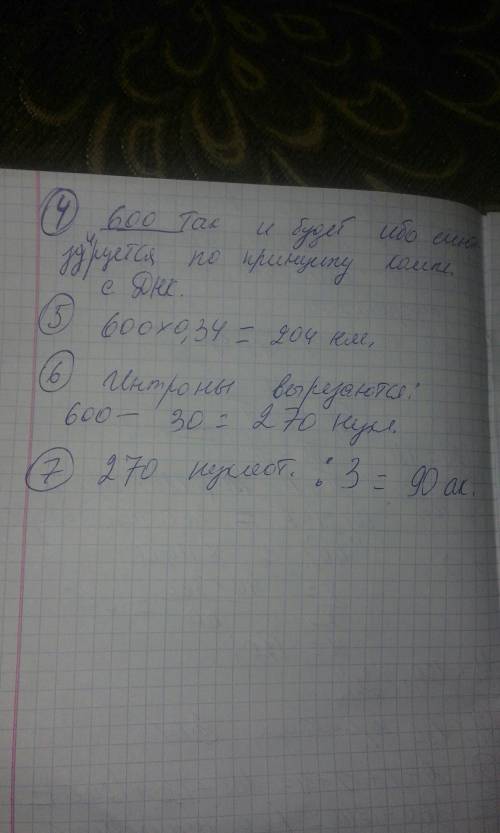 ④ 600 так и будет ибо син
руется по принципу компл.
с ДНК.
⑤ 600×0,34 = 204 нм.
⑥ Интроны вырезаются:
600 — 30 = 270 нукл.
⑦ 270 нуклеот. : 3 = 90 ак.